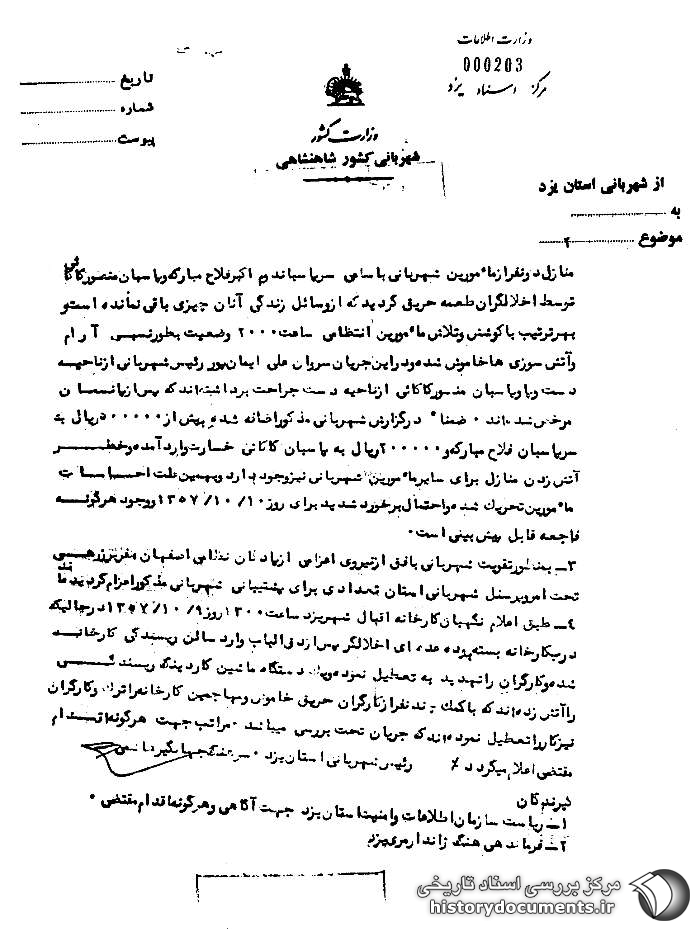 وزارت اطلاعات
000203
مرکز اسناد یزد
تاریخ
شماره
پیوست
وزارت کشور
شهربانی کشور شاهنشاهی
از شهربانی استان یزد
به
موضوع ۲
منازل دونفر از مامورین شهربانی باسامی سرپاسبان دوم اکبر فلاح مبارکه و پاسبان منصور کاکائی
توسط اخلالگران طعمه حریق گردید که از وسائل زندگی آنان چیزی باقی نمانده است و
بهر ترتیب با کوشش و تلاش مامورین انتظامی ساعت ۲۰۰۰ وضعیت بطور نسبی آرام
و آتش سوزی ها خاموش شده و در این جریان سروان علی ایمان پور رئیس شهربانی از ناحیه
دست و پا و پاسبان منصور کاکائی از ناحیه دست جراحت برداشته‌اند که پس از پانسمان
مرخص شده‌اند ۰ ضمنا در گزارش شهربانی مذکور اضافه شده بیش از ۵۰۰۰۰۰ ریال به
سرپاسبان فلاح مبارکه و ۲۰۰۰۰۰ ریال به پاسبان کاکائی خسارت وارد آمده و خطر
آتش زدن منازل برای سایر مامورین شهربانی نیز وجود دارد و بهمین علت احساسات
مامورین تحریک شده و احتمال برخورد شدید برای روز ۱۳۵۷/۱۰/۱۰ وجود هرگونه
فاجعه قابل پیش بینی است ۰
۳ـ بمنظور تقویت شهربانی بافق از نیروی اعزامی از پادگان نظامی اصفهان
تحت امر و پرسنل شهربانی استان تعدادی برای پشتیبانی شهربانی مذکور اعزام گردید
۴ـ طبق اعلام نگهبان کارخانه اقبال شهر یزد ساعت ۱۳۰۰ روز ۱۳۵۷/۱۰/۹ در حالیکه
درب کارخانه بسته بوده عده‌ای اخلالگر پس از دق الباب وارد سالن ریسندگی کارخانه
شده و کارگران را تهدید به تعطیل نموده و یک دستگاه ماشین کاردینگ ریسندگی
را آتش زده‌اند که با کمک چند نفر از کارگران حریق خاموش و مهاجمین کارخانه را ترک و کارگران
نیز کار را تعطیل نموده‌اند که جریان تحت بررسی میباشد ۰ مراتب جهت هرگونه اقدام
مقتضی اعلام میگردد ٪ رئیس شهربانی استان یزد ۰ سرهنگ
گیرندگان
۱ـ ریاست سازمان اطلاعات و امنیت استان یزد جهت آگاهی و هرگونه اقدام مقتضی ۰
۲ـ فرماندهی هنگ ژاندارمری یزد
مرکز بررسی اسناد تاریخی
historydocuments.ir